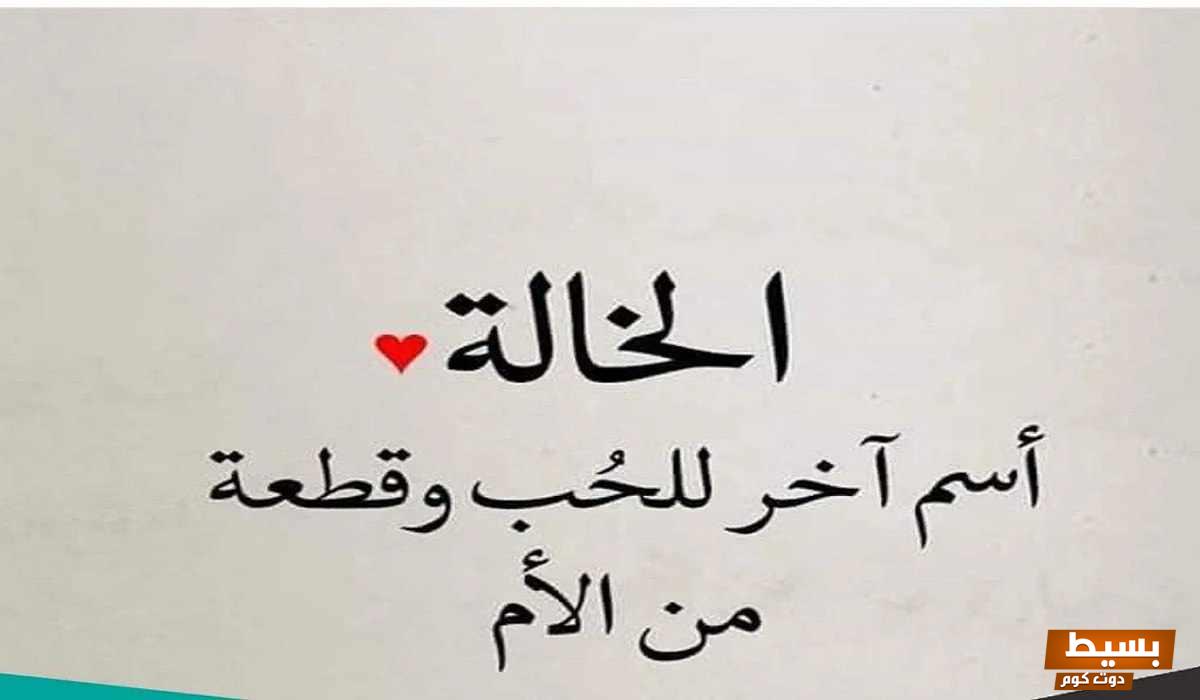 الخالة
أسم آخر للحُب وقطعة
من الأم
بسيط
دوت كوم